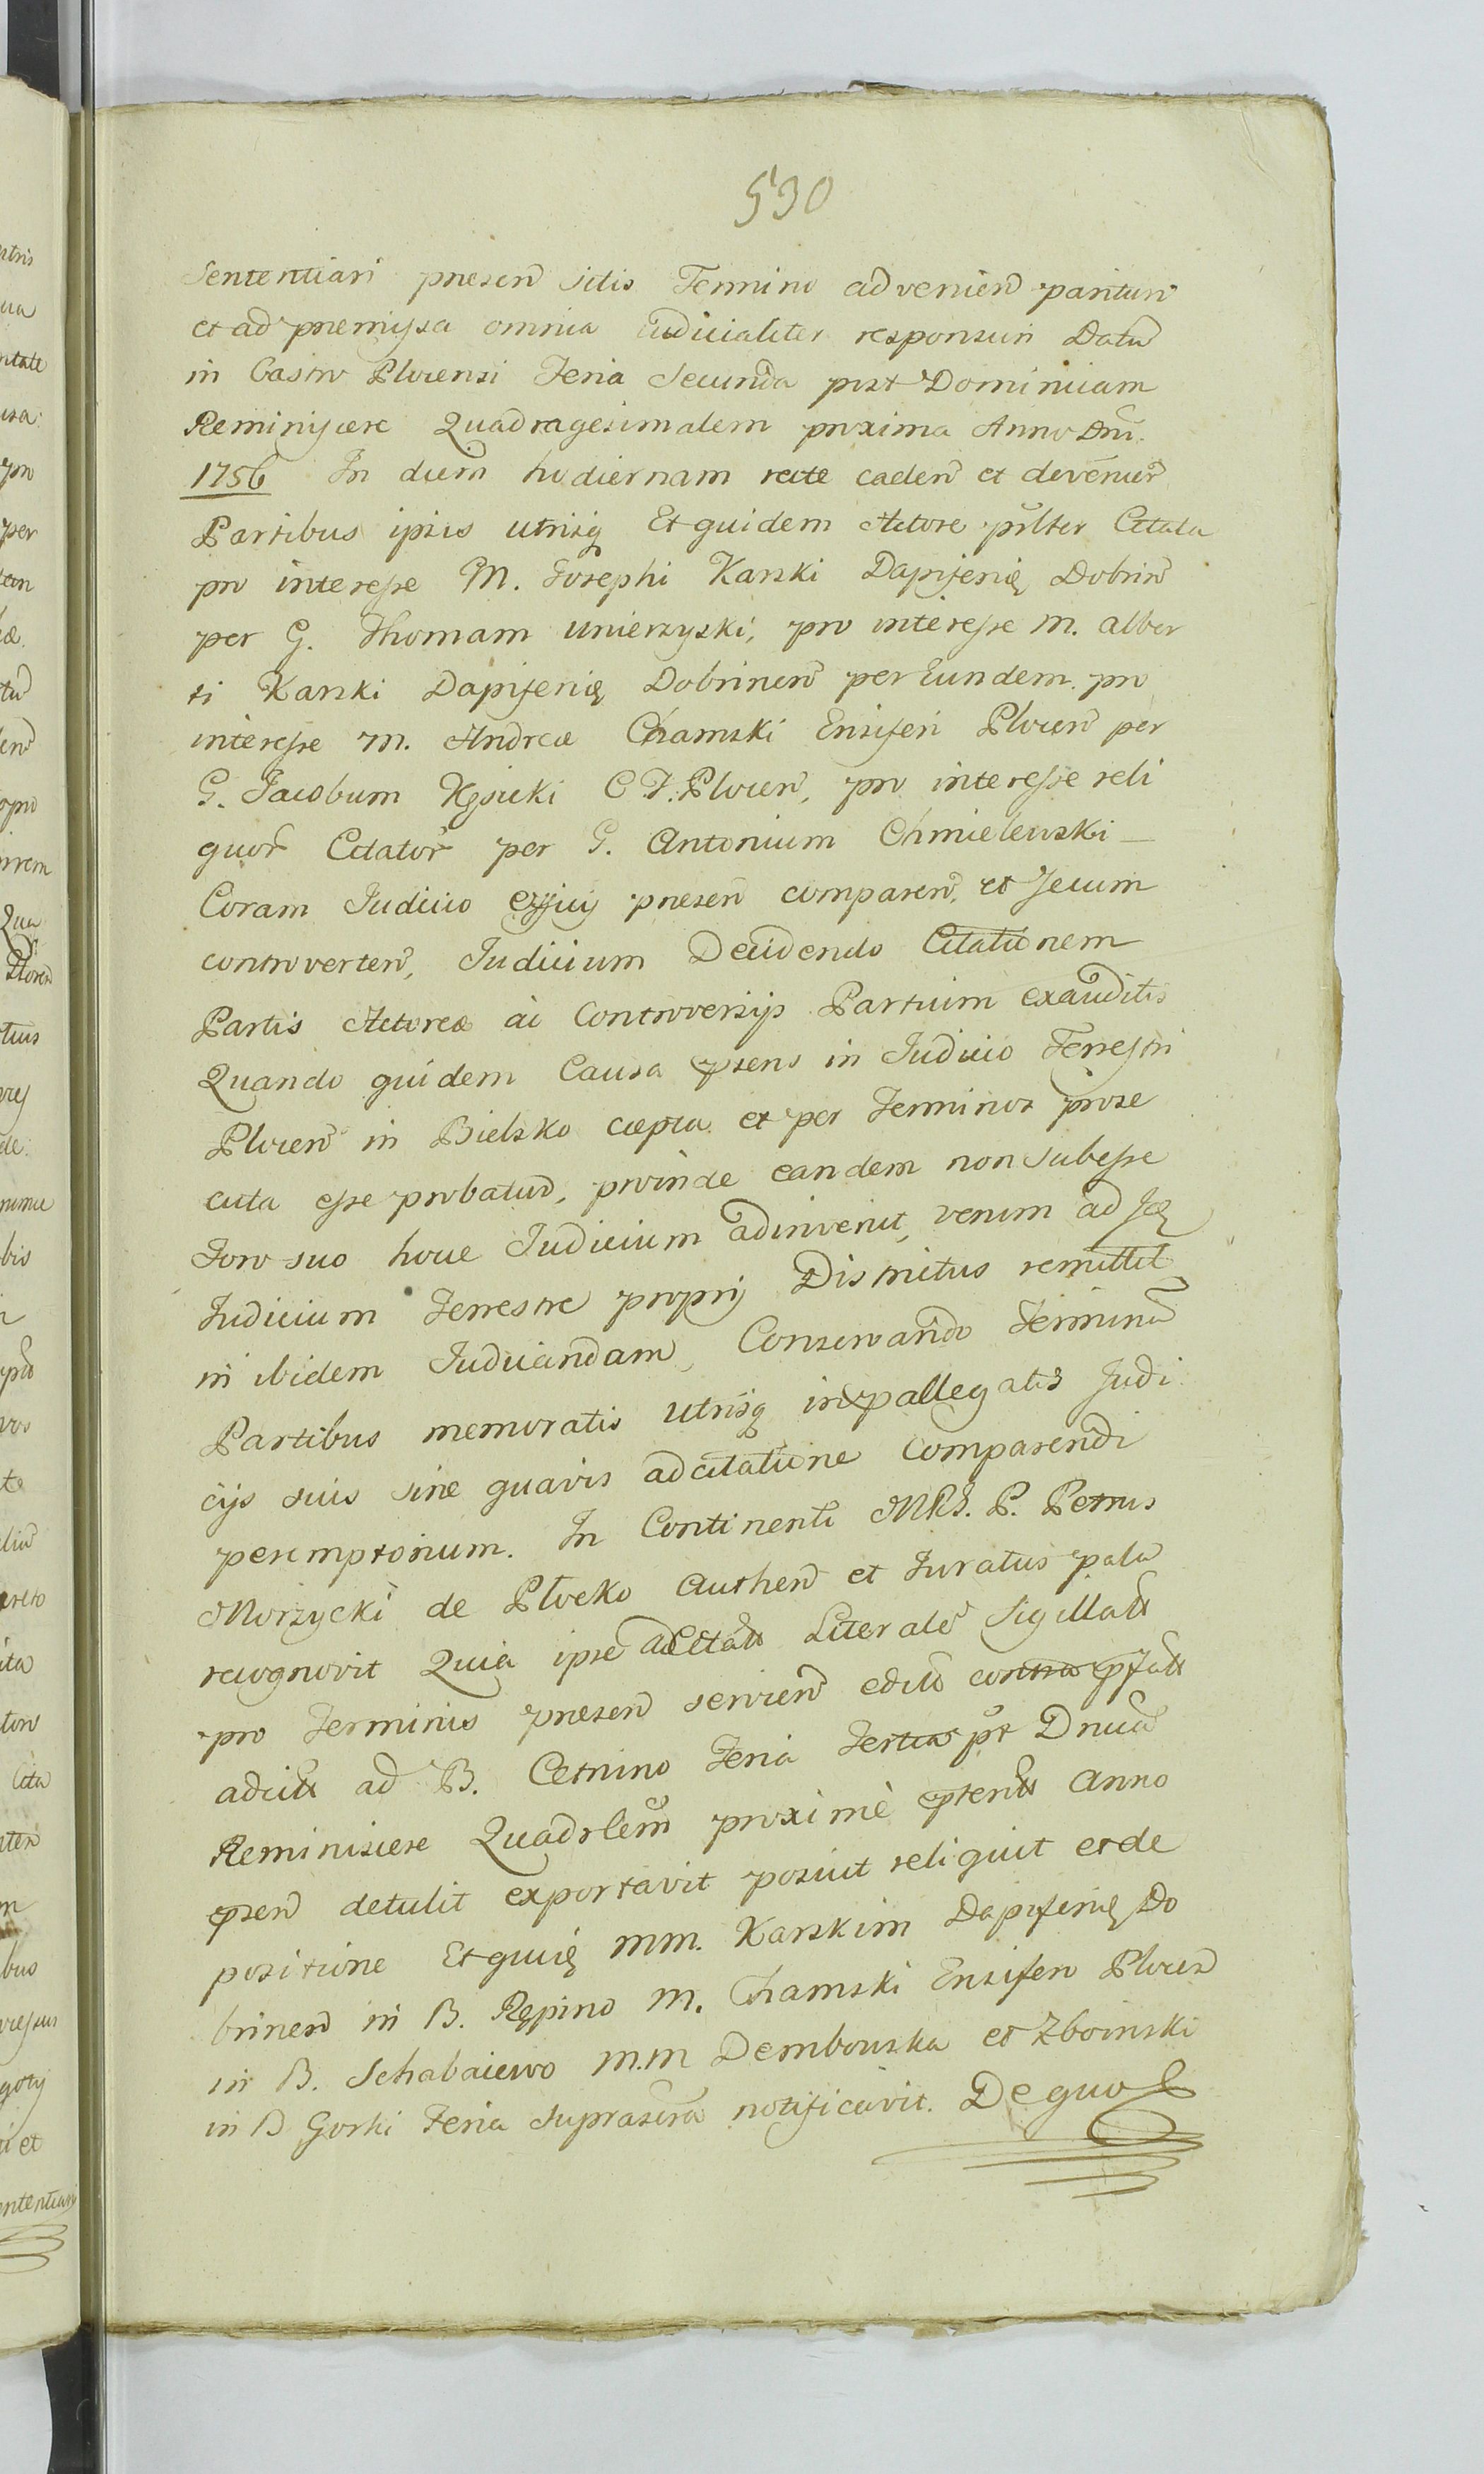 530
Sententiari presen sitis Termino advenien parituri
et ad premissa omnia Iudicialiter responsuri Datu
in Castro Plocensi Feria Secunda post Dominicam
Reminiscere Quadragesimalem proxima Anno Dni.
1756 In diem hodiernam recte caden et devenien
Partibus ipsis utrisq Et quidem Actore psnlter Citata
pro interesse M. Josephi Karski Dapiferię Dobrin
per G. Thomam Unierzyski, pro interesse M. Alber
ti Karski Dapiferię Dobrinen per Eundem. pro
interesse M. Andreæ Chamski Ensiferi Plocen per
G. Jacobum Kęsicki C T. Plocen, pro interesse reli
quor Citator per G. Antonium Chmielewski
Coram Judicio officij presen comparen, et secum
controverten, Judicium Decidendo Citationem
Partis Actoreæ ai Controversijs Partium exauditis
Quando quidem Causa psens in Judicio Terrestri
Plocen in Bielsko cæpta et per Terminos prose
cuta esse probatur, proinde eandem non subesse
Foro suo hocce Judicium adinvenit, verum ad se
Judicium Terrestre proprij Districtus remittit
in ibidem Iudicandam, Conservando Terminu
Partibus memoratis utrisq in pallegatis Judi
cijs suis sine quavis adcitatione comparendi
peremptorium. In Continenti MRS. P. Petrus
Morzycki de Płocko Authen et Juratus pala
recognovit Quia ipse adcitatt Literale Sigillatt
pro Terminis presen servien editt contra pfatt
adcitt ad B. Cetnino Feria Tertia pt Dnica
Reminiscere Quadrlem proxime pteritt Anno
psen detulit exportavit posiuit reliquit et de
positione Et quię MM. Karskim Dapiferię Do
brinen in B. Rępino M. Chamski Ensifero Plocen
in B. Schabaiewo M.M Dembowska et Zboinski
in B Gorki Feria suprascra notificavit. De quo